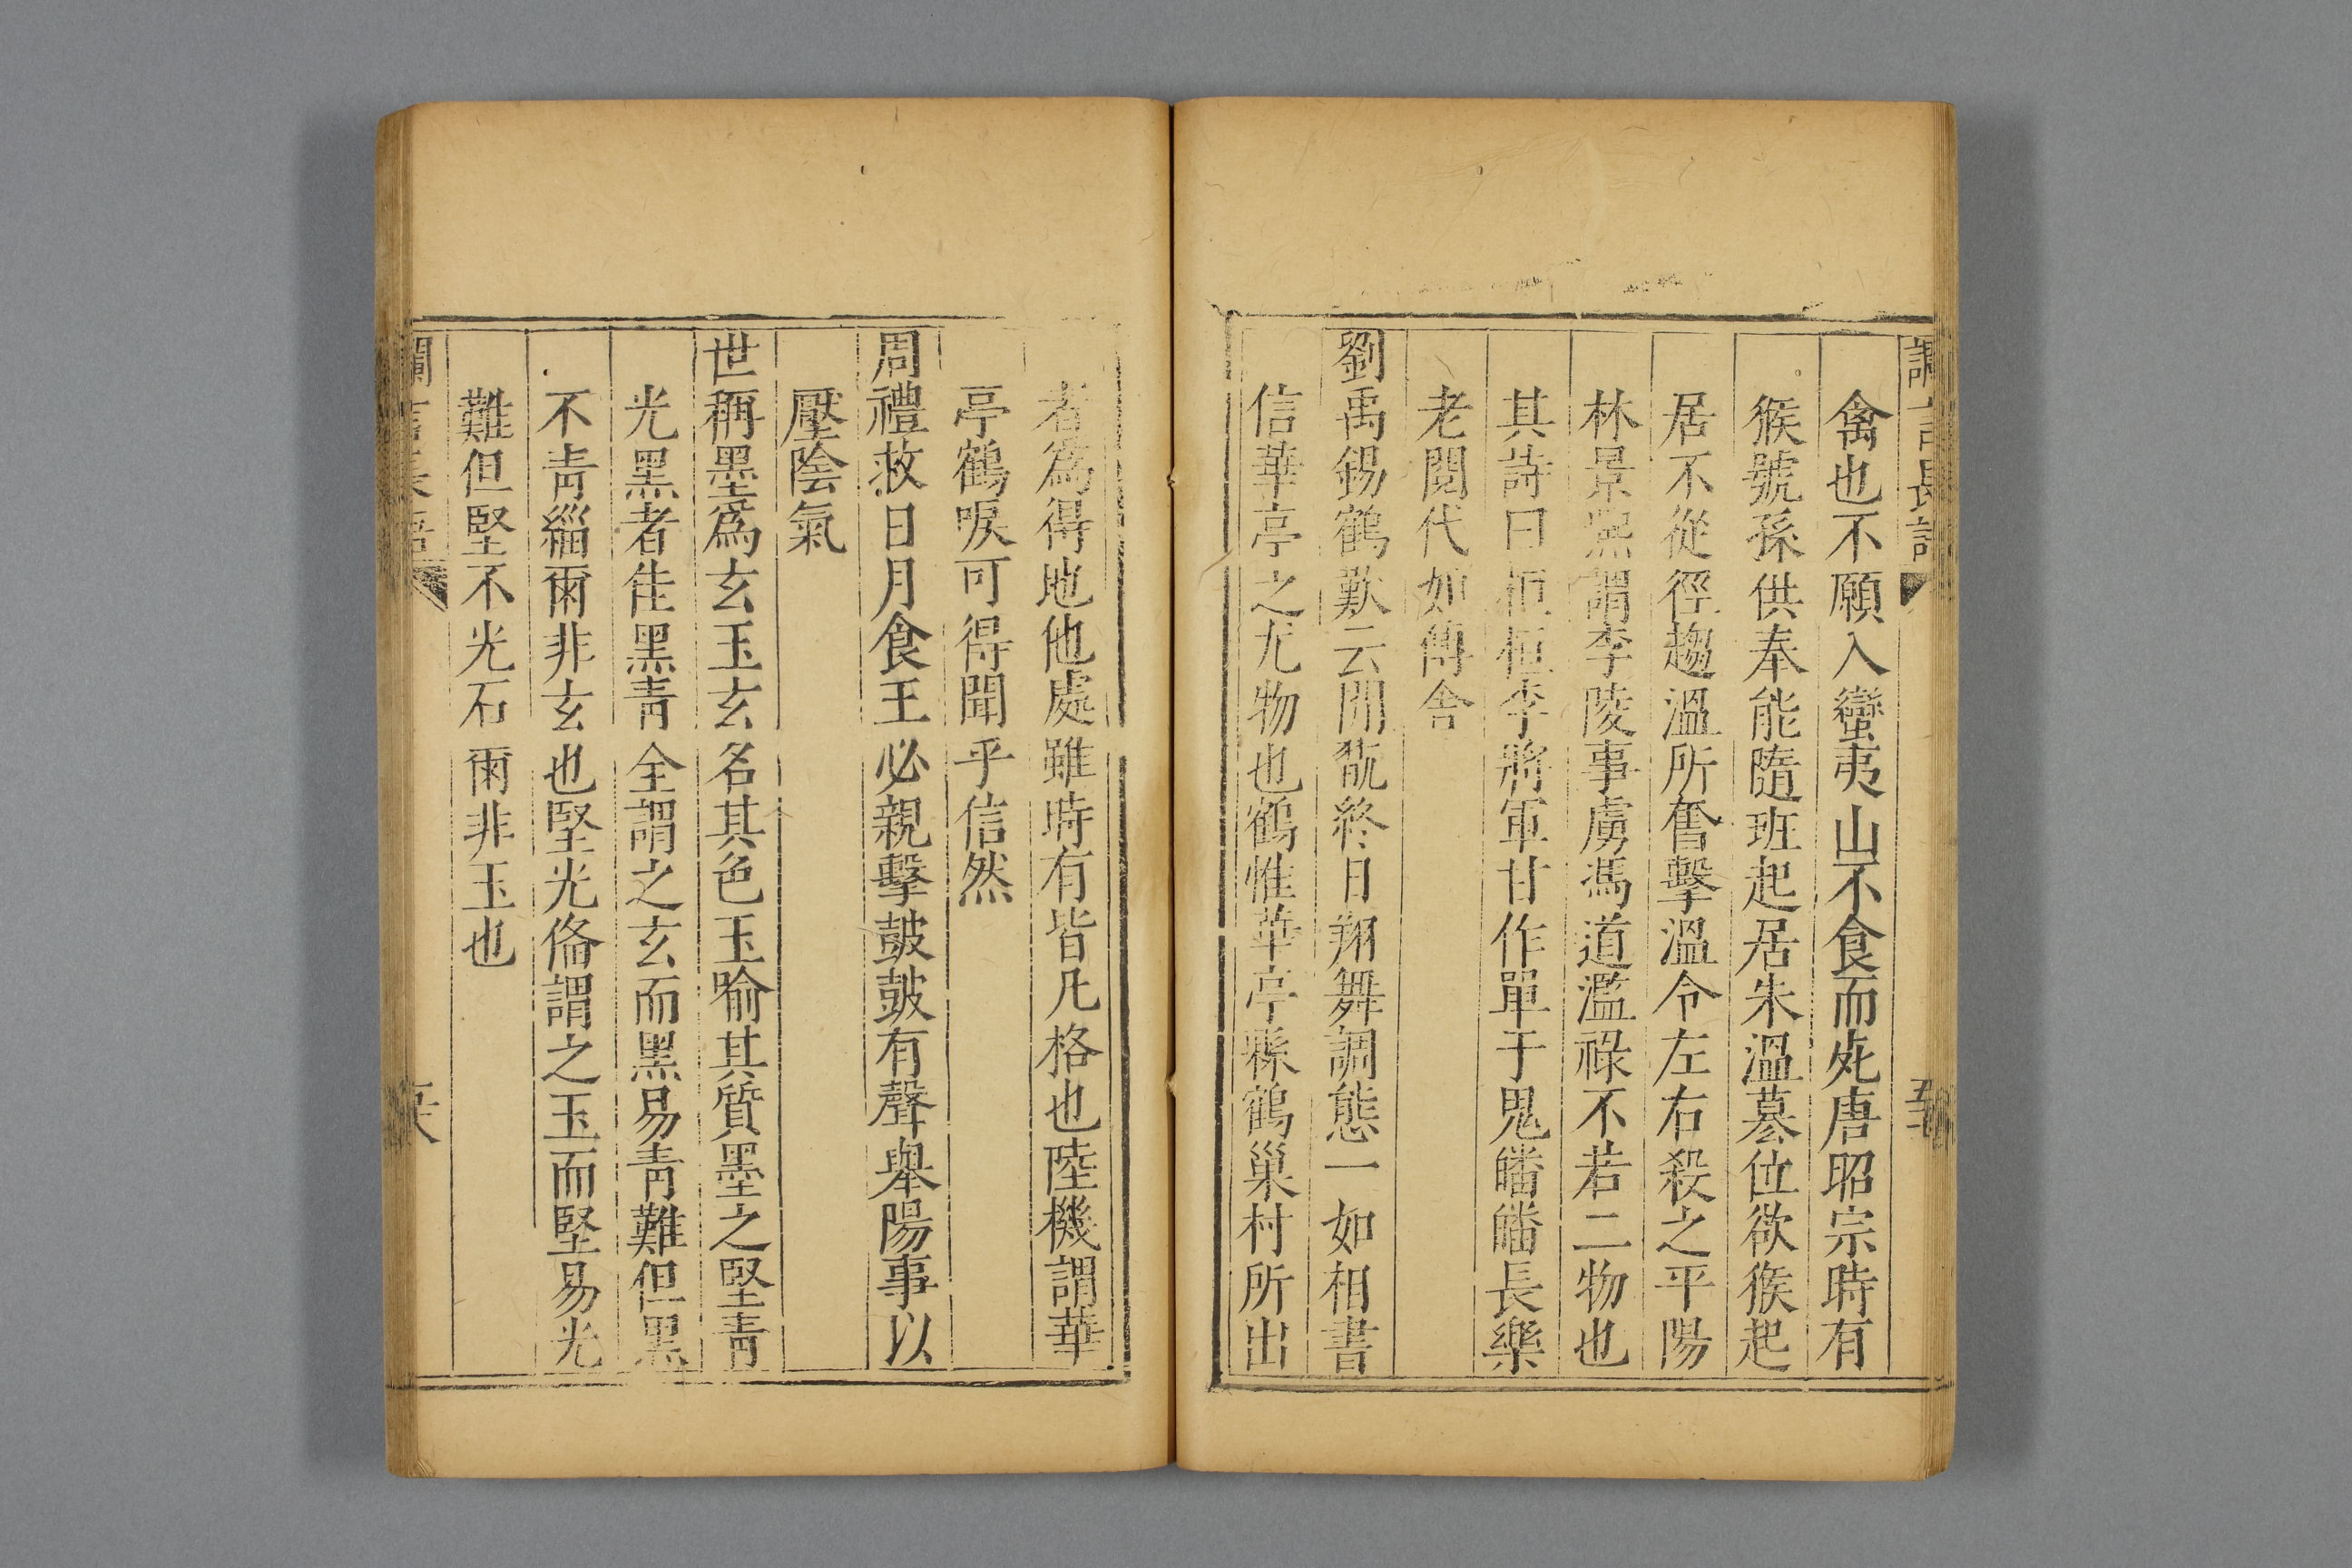 禽也不願入蠻夷山不食而死唐昭宗時有
猴號孫供奉能隨班起居朱溫簒位欲猴起
居不從徑趨溫所奮擊溫令左右殺之平陽
林景熙謂李陵事虜馮道濫祿不若二物也
其詩曰桓桓李將軍甘作單于鬼皤皤長樂
老閱代如傳舍
劉禹錫鶴歎云閒翫終日翔舞調態一如相書
信華亭之尤物也鶴惟華亭縣鶴巢村所出
者爲得地他處雖時有皆凡格也陸機謂華
亭鶴唳可得聞乎信然
周禮救日月食王必親擊鼓鼓有聲舉陽事以
壓陰氣
世稱墨爲玄玉玄名其色玉喻其質墨之堅靑
光黑者佳黑靑全謂之玄而黑易靑難但黑
不靑緇爾非玄也堅光俻謂之玉而堅易光
難但堅不光石爾非玉也